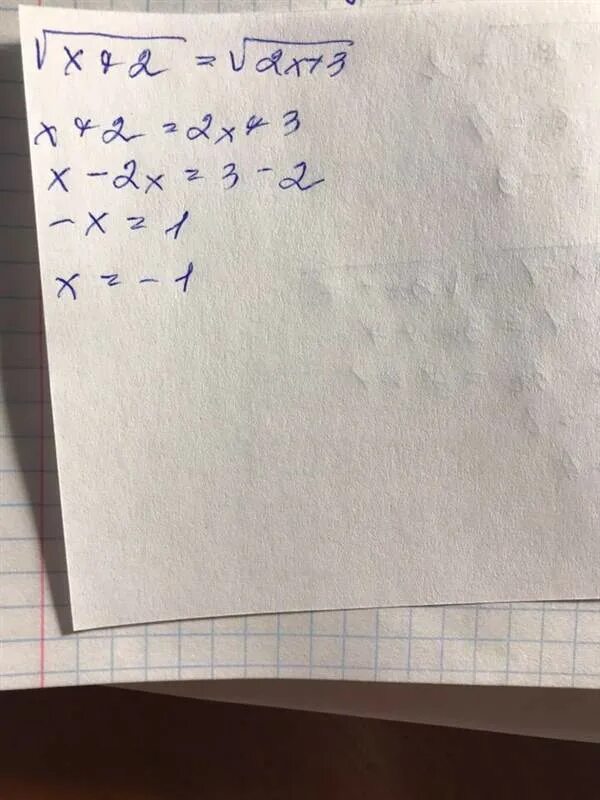 √x+2 = √2x+3
x+2 = 2x+3
x-2x = 3-2
-x = 1
x = -1